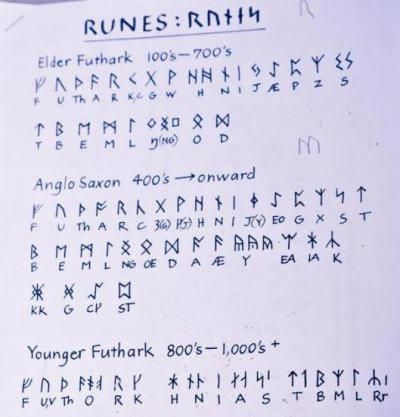 RUNES: ᚱᚢᚾᛁᛋ
Elder Futhark 100's – 700's
ᚠ ᚢ ᚦ ᚨ ᚱ ᚲ ᚷ ᚹ ᚺ ᚻ ᚾ ᛁ ᛃ ᛇ ᛈ ᛉ ᛊ
F U Th A R K,C G W H N I J Æ P Z S
ᛏ ᛒ ᛖ ᛗ ᛚ ᛜ ᛟ ᛞ
T B E M L Ŋ(NG) O D
Anglo Saxon 400's → onward
ᚠ ᚢ ᚦ ᚩ ᚱ ᚳ ᚷ ᚹ ᚻ ᚾ ᛁ ᛄ ᛇ ᛈ ᛉ ᛋ ᛏ
F U Th A R C H N I J(Y) EO G X S T
ᛒ ᛖ ᛗ ᛚ ᛝ ᛟ ᛞ ᚪ ᚫ ᚣ ᛠ ᛡ
B E M L NG OE D A Æ Y EA IA K
KK G ST
Younger Futhark 800's – 1,000's +
ᚠ ᚢ ᚦ ᚱ ᚴ ᚼ ᚾ ᚿ ᛁ ᛅ ᛆ ᛋ ᛏ ᛐ ᛒ ᛘ ᛚ ᛦ
F U,V Th O R K H N I A S T B M L Rr